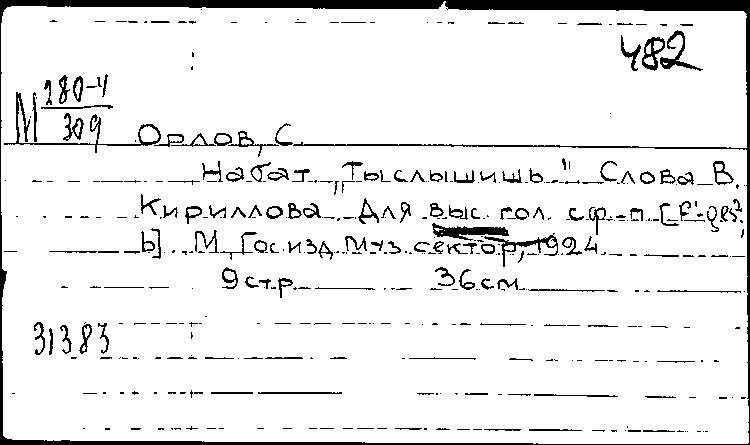 482
М 280-4
309
Орлов, С.
Набат „Ты слышишь" Слова В.
Кириллова. Для выс. гол. с ф-п [f'-ges²,
b] М, Госизд Муз сектор, 1924
9 стр 36 см
31383